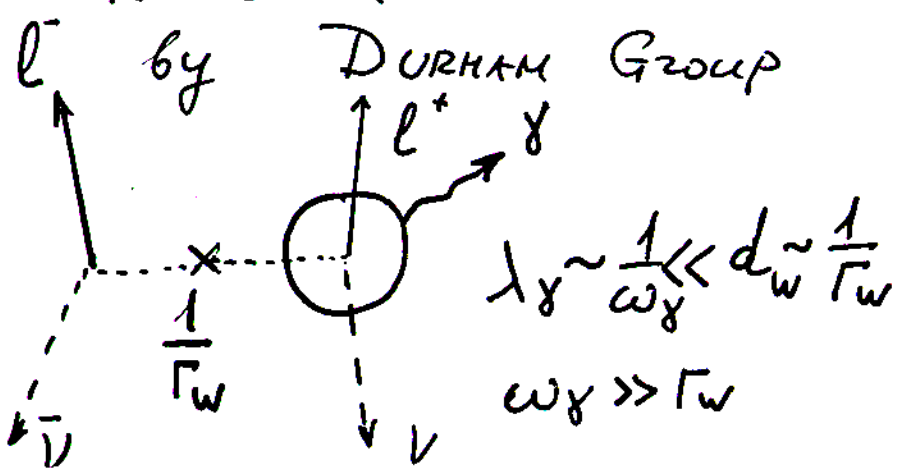 l⁻ by DURHAM Group
l⁺ γ
λγ ~ 1/ωγ << dw ~ 1/Γw
1/Γw
ωγ >> Γw
ν̄ ν